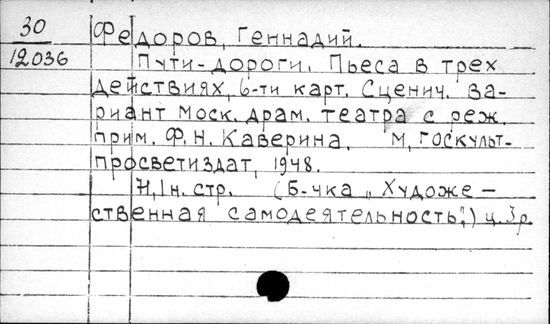 30
12036
Федоров, Геннадий.
Пути-дороги. Пьеса в трех
действиях, 6-ти карт. Сценич. ва-
риант Моск. драм. театра с реж.
прим. Ф. Н. Каверина. М, Госкульт-
просветиздат, 1948.
71, 1 н. стр. (Б-чка „Художе-
ственная самодеятельность") ц. 3 р.